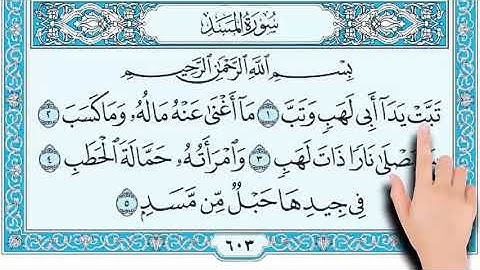 سُورَةُ المَسَدِ
بِسْمِ اللَّهِ الرَّحْمَٰنِ الرَّحِيمِ
تَبَّتْ يَدَآ أَبِى لَهَبٍ وَتَبَّ ١ مَآ أَغْنَىٰ عَنْهُ مَالُهُۥ وَمَا كَسَبَ ٢
نَارًا ذَاتَ لَهَبٍ ٣ وَٱمْرَأَتُهُۥ حَمَّالَةَ ٱلْحَطَبِ ٤
فِى جِيدِهَا حَبْلٌ مِّن مَّسَدٍۭ ٥
٦٠٣